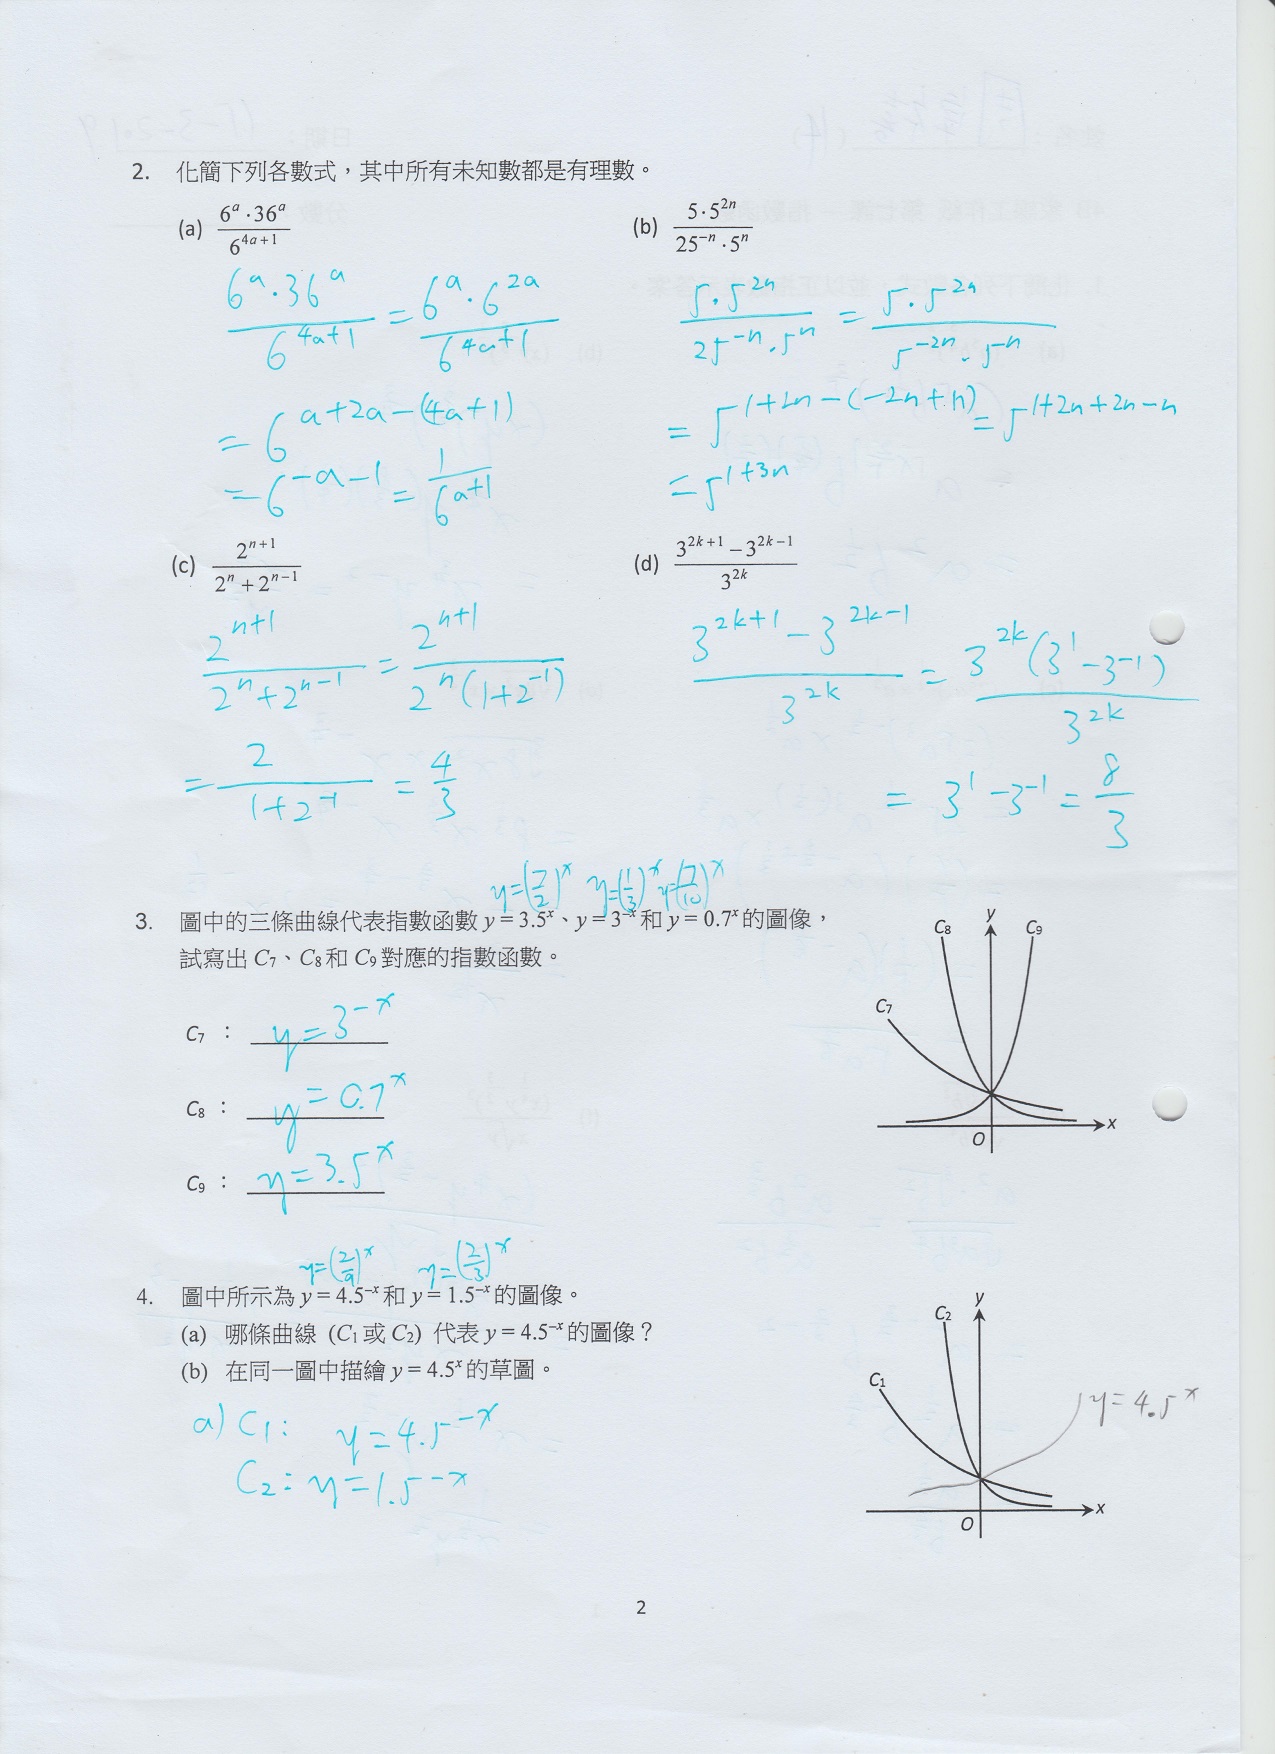 2. 化簡下列各數式，其中所有未知數都是有理數。
(a) 6^a·36^a / 6^{4a+1}
(b) 5·5^{2n} / 25^{-n}·5^n
6^a·36^a / 6^{4a+1} = 6^a·6^{2a} / 6^{4a+1}
= 6^{a+2a-(4a+1)}
= 6^{-a-1} = 1 / 6^{a+1}
5·5^{2n} / 25^{-n}·5^n = 5·5^{2n} / 5^{-2n}·5^n
= 5^{1+2n-(-2n+n)} = 5^{1+2n+2n-n}
= 5^{1+3n}
(c) 2^{n+1} / 2^n+2^{n-1}
(d) 3^{2k+1}-3^{2k-1} / 3^{2k}
2^{n+1} / 2^n+2^{n-1} = 2^{n+1} / 2^n(1+2^{-1})
= 2 / 1+2^{-1} = 4/3
3^{2k+1}-3^{2k-1} / 3^{2k} = 3^{2k}(3^1-3^{-1}) / 3^{2k}
= 3^1-3^{-1} = 8/3
y=(7/2)^x y=(1/3)^x y=(7/10)^x
3. 圖中的三條曲線代表指數函數 y = 3.5^x、y = 3^{-x} 和 y = 0.7^x 的圖像，
試寫出 C7、C8 和 C9 對應的指數函數。
C7 : y=3^{-x}
C8 : y=0.7^x
C9 : y=3.5^x
C8
y
C9
C7
O
x
y=(2/9)^x y=(2/3)^x
4. 圖中所示為 y = 4.5^{-x} 和 y = 1.5^{-x} 的圖像。
(a) 哪條曲線 (C1 或 C2) 代表 y = 4.5^{-x} 的圖像？
(b) 在同一圖中描繪 y = 4.5^x 的草圖。
a) C1: y=4.5^{-x}
C2: y=1.5^{-x}
y
C2
C1
y=4.5^x
O
x
2